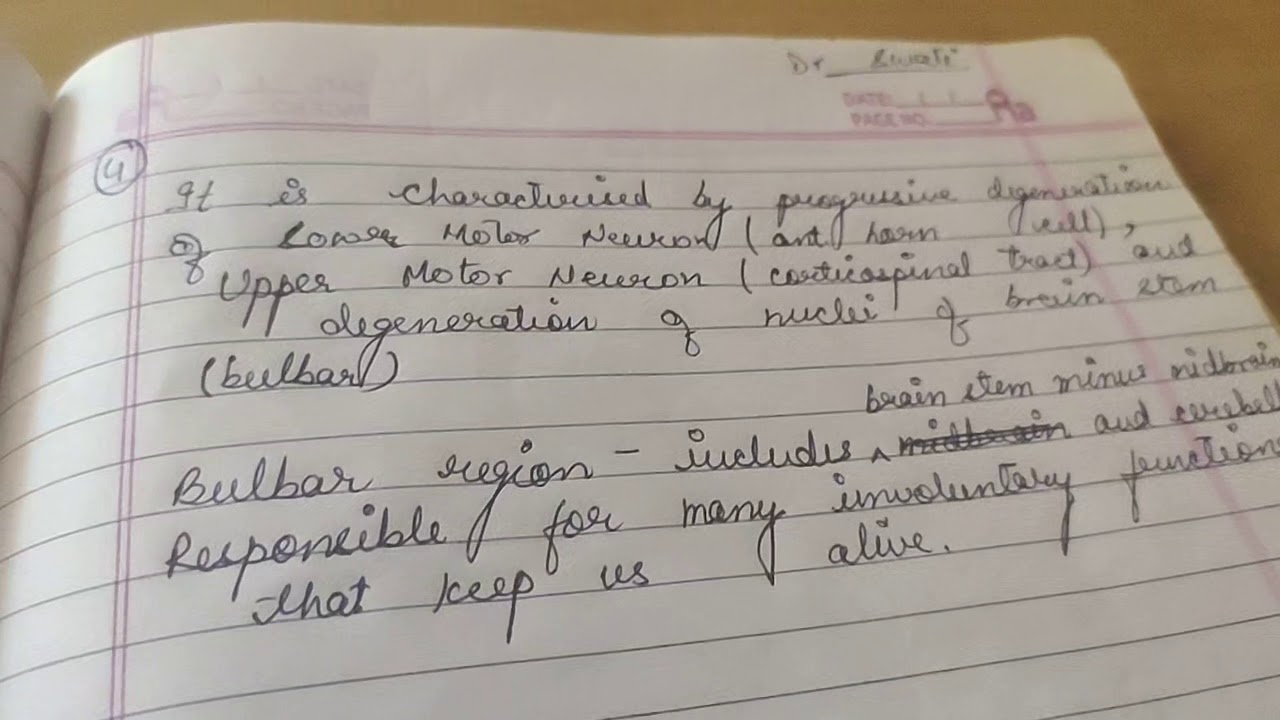 Dr Swati
DATE: / /
PAGE NO.
4
It is characterised by progressive degeneration
of Lower Motor Neuron (ant horn cell),
Upper Motor Neuron (corticospinal tract) and
degeneration of nuclei of brain stem
(bulbar)
brain stem minus midbrain
Bulbar region - includes ^ midbrain and cerebell
Responsible for many involuntary function
that keep us alive.